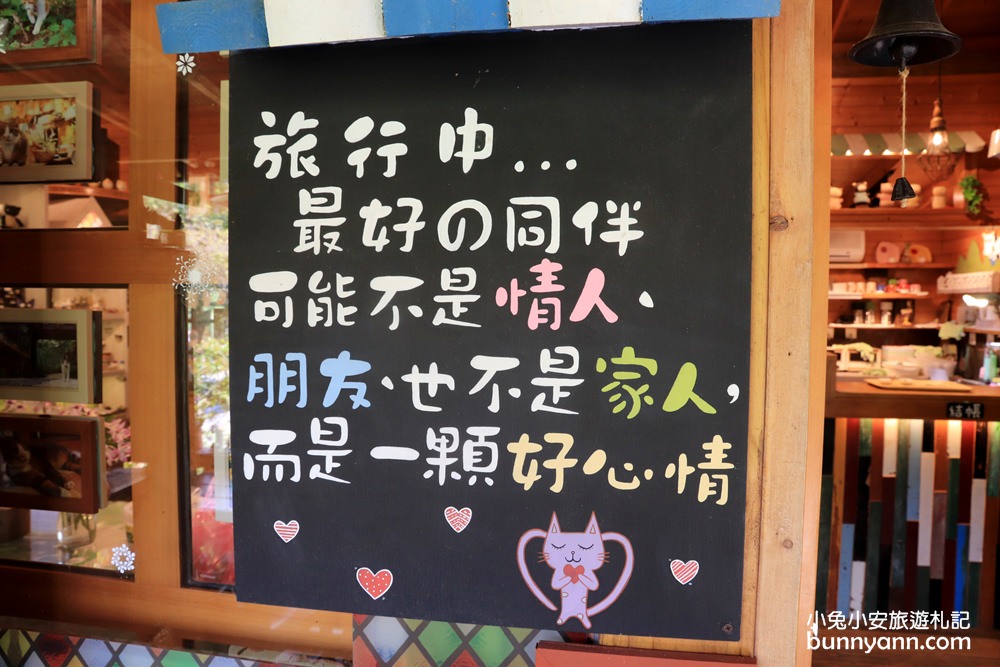 旅行中...
最好の同伴
可能不是情人、
朋友、也不是家人，
而是一顆好心情
結帳
小兔小安旅遊札記
bunnyann.com